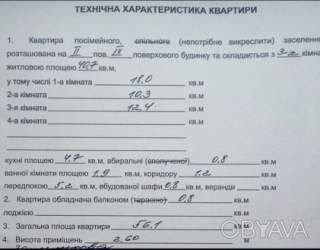 ТЕХНІЧНА ХАРАКТЕРИСТИКА КВАРТИРИ
1. Квартира посімейного, спільного (непотрібне викреслити) заселення
розташована на II пов. IX поверхового будинку та складається з 3-х кімнат
житловою площею 40,7 кв.м,
у тому числі 1-а кімната 18,0 кв.м
2-а кімната 10,3 кв.м
3-я кімната 12,4 кв.м
4-а кімната кв.м
кухні площею 4,7 кв.м, вбиральні (сполученої) 0,8 кв.м
ванної кімнати площею 1,9 кв.м, коридору 1,2 кв.м
передпокою 5,2 кв.м, вбудованої шафи 0,8 кв.м, веранди кв.м
2. Квартира обладнана балконом (терасою) 0,8 кв.м
лоджією кв.м
3. Загальна площа квартири 56,1 кв.м
4. Висота приміщень 2,60 м
OGOLOSHA